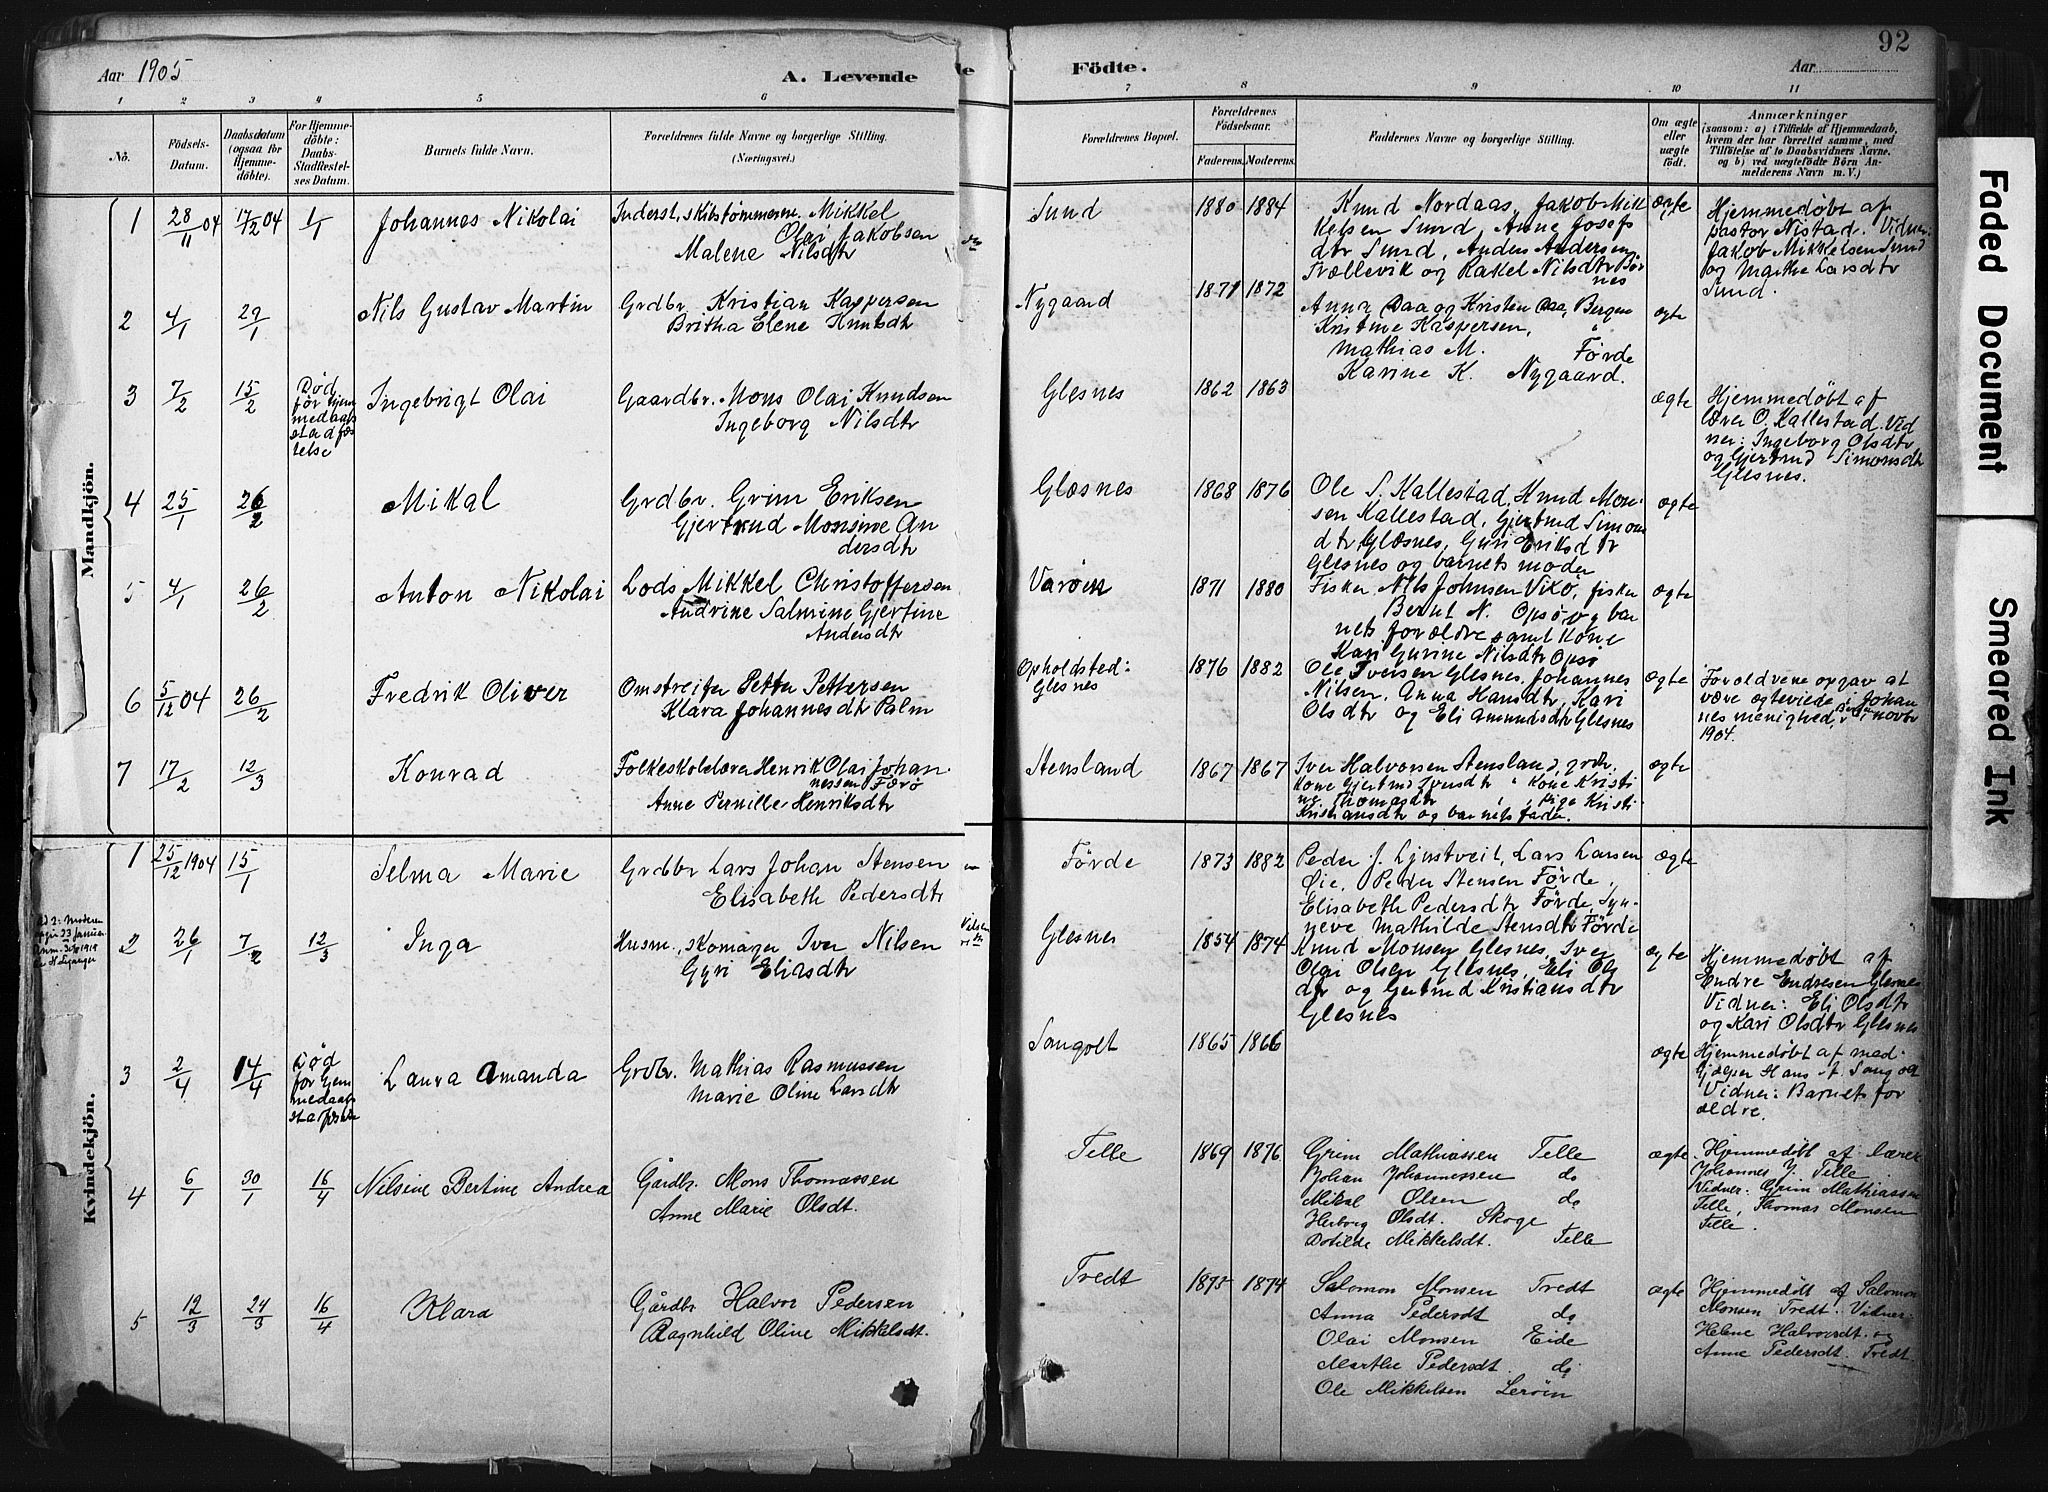 Aar 1905
A. Levende
Födte.
Aar
92
1 2 3 4 5 6 7 8 9 10 11
No.
Födsels-
Datum.
Daabsdatum
(ogsaa for
Hjemme-
döbte).
For Hjemme-
döbte:
Daabs-
Stadfæstel-
ses Datum.
Barnets fulde Navn.
Forældrenes fulde Navne og borgerlige Stilling.
(Næringsvei.)
Forældrenes Bopæl.
Forældrenes
Födselsaar.
Faderens. Moderens.
Faddernes Navne og borgerlige Stilling.
Om ægte
eller
uægte
födt.
Anmærkninger
(saasom: a) i Tilfælde af Hjemmedaab,
hvem der har forrettet samme, med
Tilföielse af to Daabsvidners Navne,
og b) ved uægtefödte Börn An-
melderens Navn m. V.)
Mandkjön.
1 28/11 04 17/2 04 1/1 Johannes Nikolai
Inderst, skibstømmerm. Mikkel
Olai Jakobsen
Malene Nilsdtr
Sund 1880 1884
Knud Nordaas, Jakob Mik
kelsen Sund, Anne Josefs
dtr Sund, Anders Andersen
Trællevik og Rakel Nilsdtr Bør
nes
ægte
Hjemmedøbt af
pastor Nistad. Vidner:
Jakob Mikkelsen Sund
og Marthe Larsdtr
Sund.
2 4/1 29/1 Nils Gustav Martin
Grdbr Kristian Kaspersen
Britha Elene Knutsdtr
Nygaard 1871 1872
Anna Daa og Kristen Daa, Bergen
Kristine Kaspersen, "
Mathias M. Førde
Karine K. Nygaard.
ægte
3 7/2 15/2
Død
før hjem
medaabs
stadfæs
telse
Ingebrigt Olai
Gaardbr. Mons Olai Knudsen
Ingeborg Nilsdtr
Glesnes 1862 1863
ægte
Hjemmedøbt af
lærer O. Kallestad. Vid
ner: Ingeborg Olsdtr
og Gjertrud Simonsdtr
Glesnes.
4 25/1 26/2 Mikal
Grdbr. Grim Eriksen
Gjertrud Monsine An
dersdtr
Glæsnes 1868 1876
Ole S. Kallestad, Knud Mon-
sen Kallestad, Gjertrud Simons
dtr Glæsnes, Guri Eriksdtr
Glesnes og barnets moder
ægte
5 4/1 26/2 Anton Nikolai
Lods Mikkel Christoffersen
Andrine Salmine Gjertine
Andersdtr
Varøen 1871 1880
Fisker Nils Johnsen Vikø, fisker
Bernt N. Opsø og bar
nets forældre samt Kone
Kari Gurine Nilsdtr Opsø
ægte
6 5/12 04 26/2 Fredrik Oliver
Omstreifer Petter Pettersen
Klara Johannesdtr Palm
Opholdsted:
Glesnes
1876 1882
Ole Iversen Glesnes, Johannes
Nilsen, Anna Hansdtr, Kari
Olsdtr og Eli Amundsdtr Glesnes
ægte
Forældrene opgav at
være ægteviede i Johan
nes menighed, Bergen i novbr
1904.
7 17/2 12/3 Konrad
Folkeskolelærer Henrik Olai Johan
nessen Færø
Anne Pernille Henriksdtr
Stensland 1867 1867
Iver Halvorsen Stensland, grdbr.
Kone Gjertrud Iversdtr " Kone Kristi
ne Thomasdtr " , Pige Kristi
Kristiansdtr og barnets fader.
ægte
Kvindekjön.
1 25/12 1904 15/1 Selma Marie
Grdbr Lars Johan Stensen
Elisabeth Pedersdtr
Førde 1873 1882
Peder J. Ljustveit, Lars Larsen
Øie, Peder Stensen Førde,
Elisabeth Pedersdtr Førde, Syn
neve Mathilde Stensdtr Førde
ægte
2 26/1 7/2 12/3 Inga
Husm., skomager Iver Nilsen
Gyri Eliasdtr
Glesnes 1854 1874
Knud Monsen Glesnes, Iver
Olai Olsen Glesnes, Eli Ols
dtr og Gjertrud Kristiansdtr
Glesnes
ægte
Hjemmedøbt af
Endre Endresen Glesnes
Vidner: Eli Olsdtr
og Kari Olsdtr Glesnes
3 2/4 14/4
Død
før hjem
medaabs
Laura Amanda
Grdbr. Mathias Rasmussen
Marie Oline Larsdtr
Sangolt 1865 1866
ægte
Hjemmedøbt af med-
hjælper Hans A. Sangolt
Vidner: Barnets for
ældre.
4 6/1 30/1 16/4 Nilsine Bertine Andrea
Gårdbr. Mons Thomassen
Anne Marie Olsdt.
Telle 1869 1876
Grim Mathiassen Telle
Johan Johannessen do
Mikal Olsen do
Herborg Olsdt. Skoge
Dotilde Mikkelsdt. Telle
ægte
Hjemmedøbt af lærer
Johannes J. Telle
Vidner: Grim Mathiassen
Telle, Thomas Monsen
Telle.
5 12/3 24/3 16/4 Klara
Gårdbr Halvor Pedersen
Ragnhild Oline Mikkelsdt.
Tredt 1875 1874
Salomon Monsen Tredt
Anna Pedersdt do
Olai Monsen Eide
Marthe Pedersdt. do
Ole Mikkelsen Lerøin
ægte
Hjemmedøbt af Salomon
Monsen Tredt. Vidner:
Helene Halvorsdt. og
Anne Pedersdt. Tredt
Faded Document
Smeared Ink